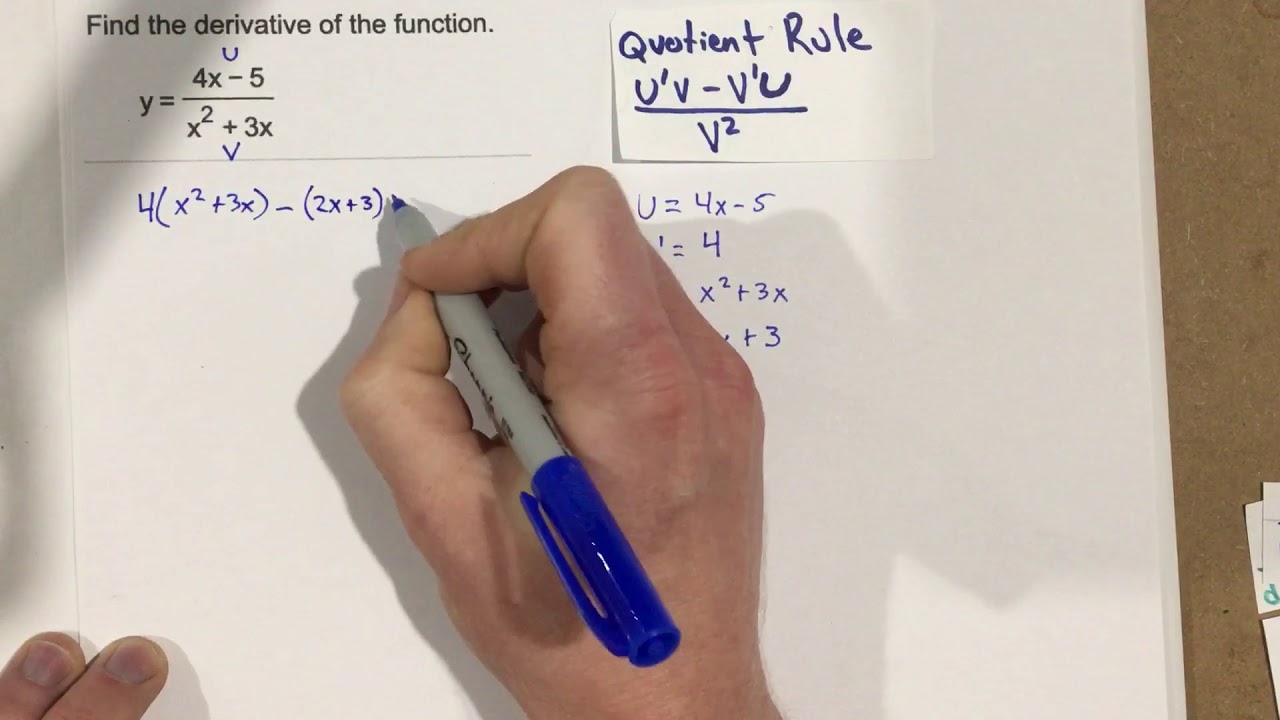 Find the derivative of the function.
U
y = 4x − 5
x² + 3x
V
Quotient Rule
U'V − V'U
V²
4(x² + 3x) − (2x + 3)
U = 4x − 5
' = 4
x² + 3x
+ 3